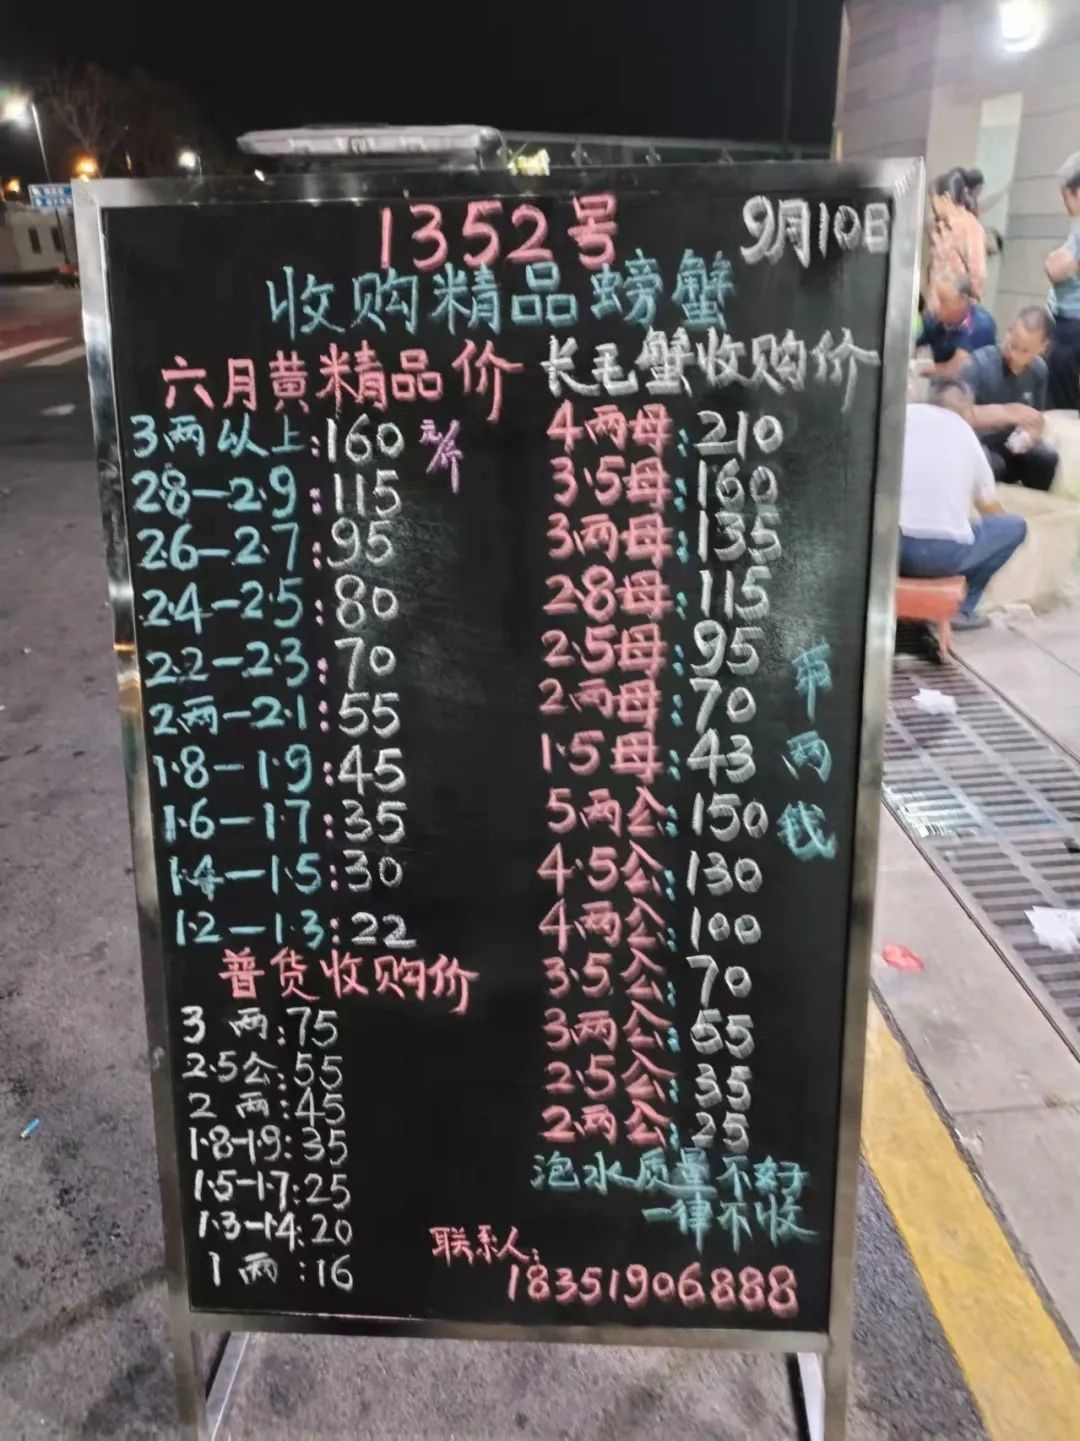 1352号
9月10日
收购精品螃蟹
六月黄精品价
3两以上:160 元/斤
2.8-2.9:115
2.6-2.7:95
2.4-2.5:80
2.2-2.3:70
2两-2.1:55
1.8-1.9:45
1.6-1.7:35
1.4-1.5:30
1.2-1.3:22
普货收购价
3两:75
2.5公:55
2两:45
1.8-1.9:35
1.5-1.7:25
1.3-1.4:20
1两:16
长毛蟹收购价
4两母:210
3.5母:160
3两母:135
2.8母:115
2.5母:95
2两母:70
1.5母:43
5两公:150
4.5公:130
4两公:100
3.5公:70
3两公:55
2.5公:35
2两公:25
两钱
泡水质量不好
一律不收
联系人:
18351906888